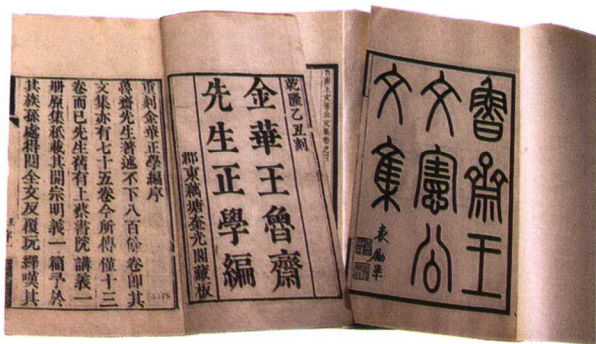 魯齋王
文憲公
文集
袁勵準
乾隆乙丑刻
金華王魯齋
先生正學編
郡東藕塘奎光閣藏板
重刻金華正學編序
魯齋先生著述不下八百餘卷卽其
文集亦有七十五卷今所傳僅十三
卷而已先生舊有上蔡書院講義一
册原集秪載其開宗明義一篇予於
其族孫處得閱全文反復玩繹嘆其